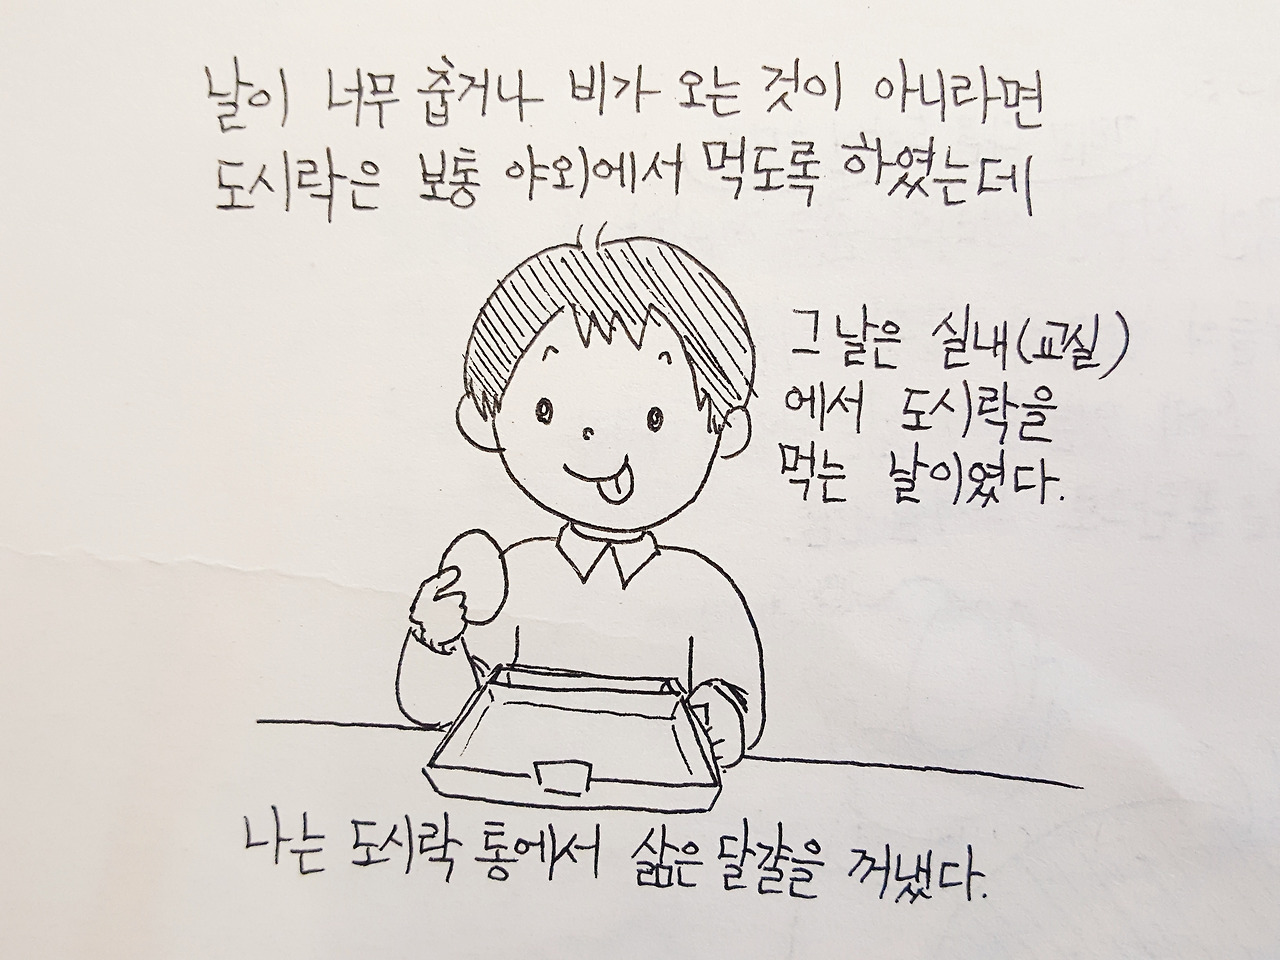 날이 너무 춥거나 비가 오는 것이 아니라면
도시락은 보통 야외에서 먹도록 하였는데
그날은 실내(교실)
에서 도시락을
먹는 날이였다.
나는 도시락 통에서 삶은 달걀을 꺼냈다.